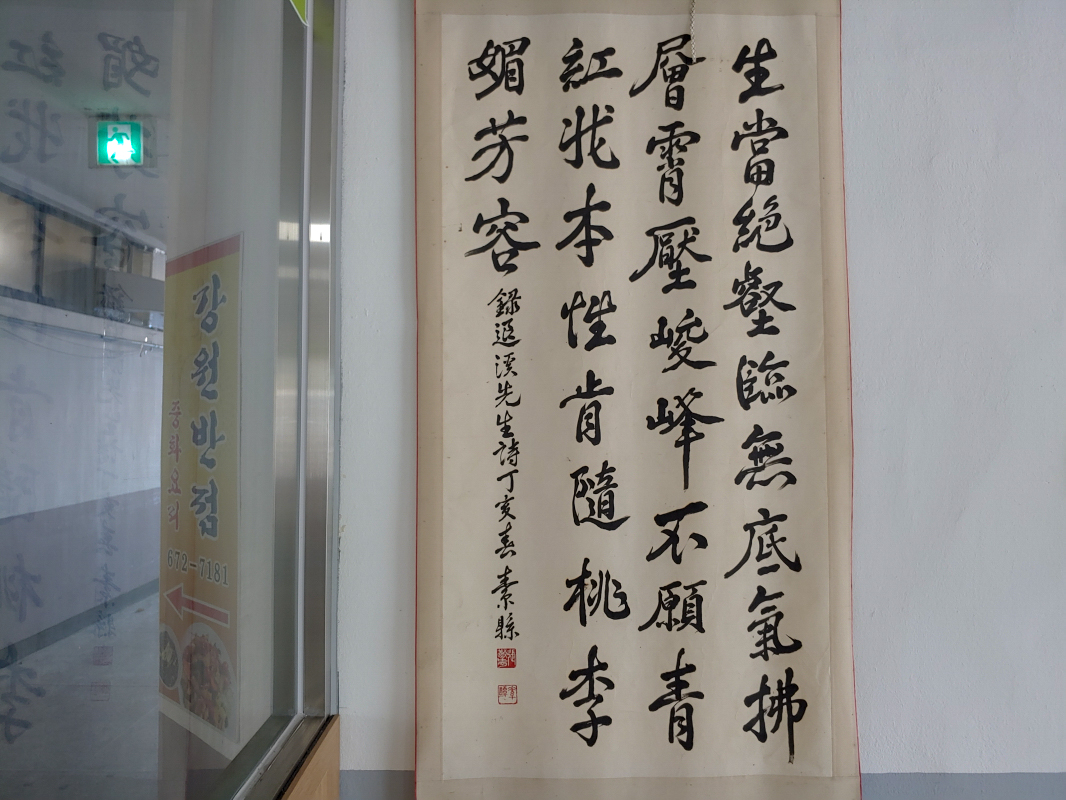 生當絶壑臨無底氣拂
層霄壓峻峰不願青
紅戕本性肯隨桃李
媚芳容
錄退溪先生詩丁亥春 素縣
강원반점
중화요리
672-7181